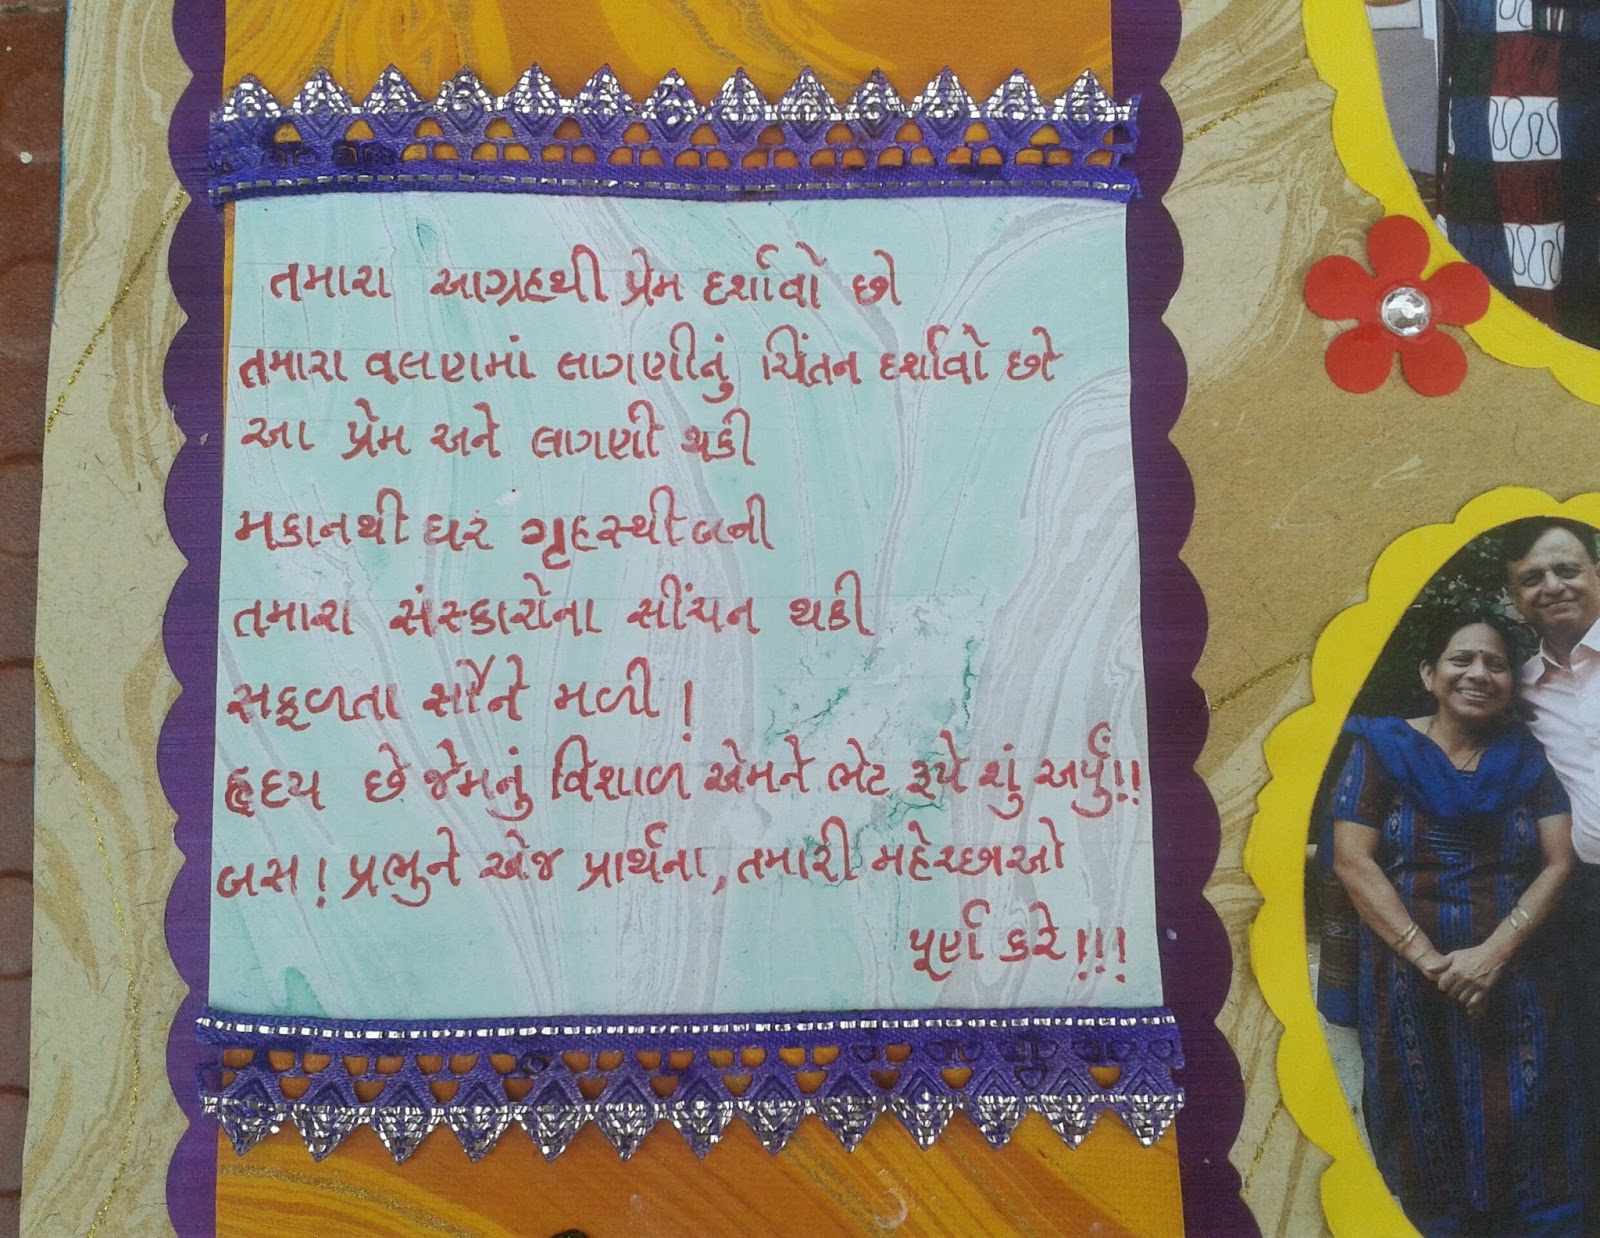 તમારા આગ્રહથી પ્રેમ દર્શાવો છો
તમારા વલણમાં લાગણીનું ચિંતન દર્શાવો છો
આ પ્રેમ અને લાગણી થકી
મકાનથી ઘર ગૃહસ્થી બની
તમારા સંસ્કારોના સીંચન થકી
સફળતા સૌને મળી!
હૃદય છે જેમનું વિશાળ એમને ભેટ રૂપે શું અર્પુ!!
બસ! પ્રભુને એજ પ્રાર્થના, તમારી મહેચ્છાઓ
પૂર્ણ કરે!!!